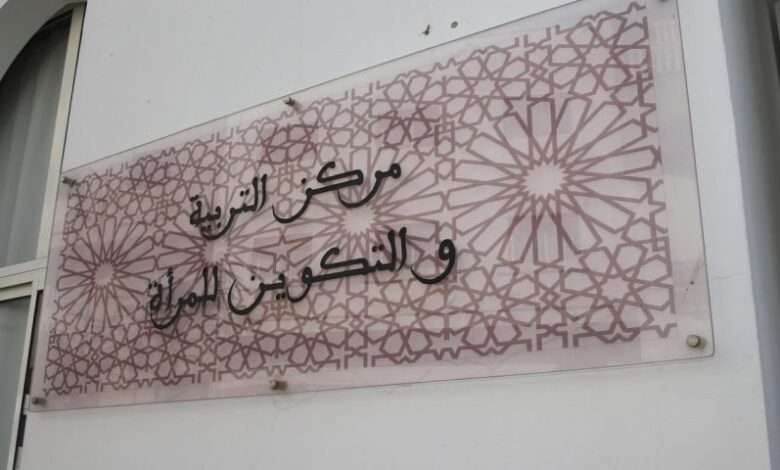 مركز التربية
و التكوين للمرأة